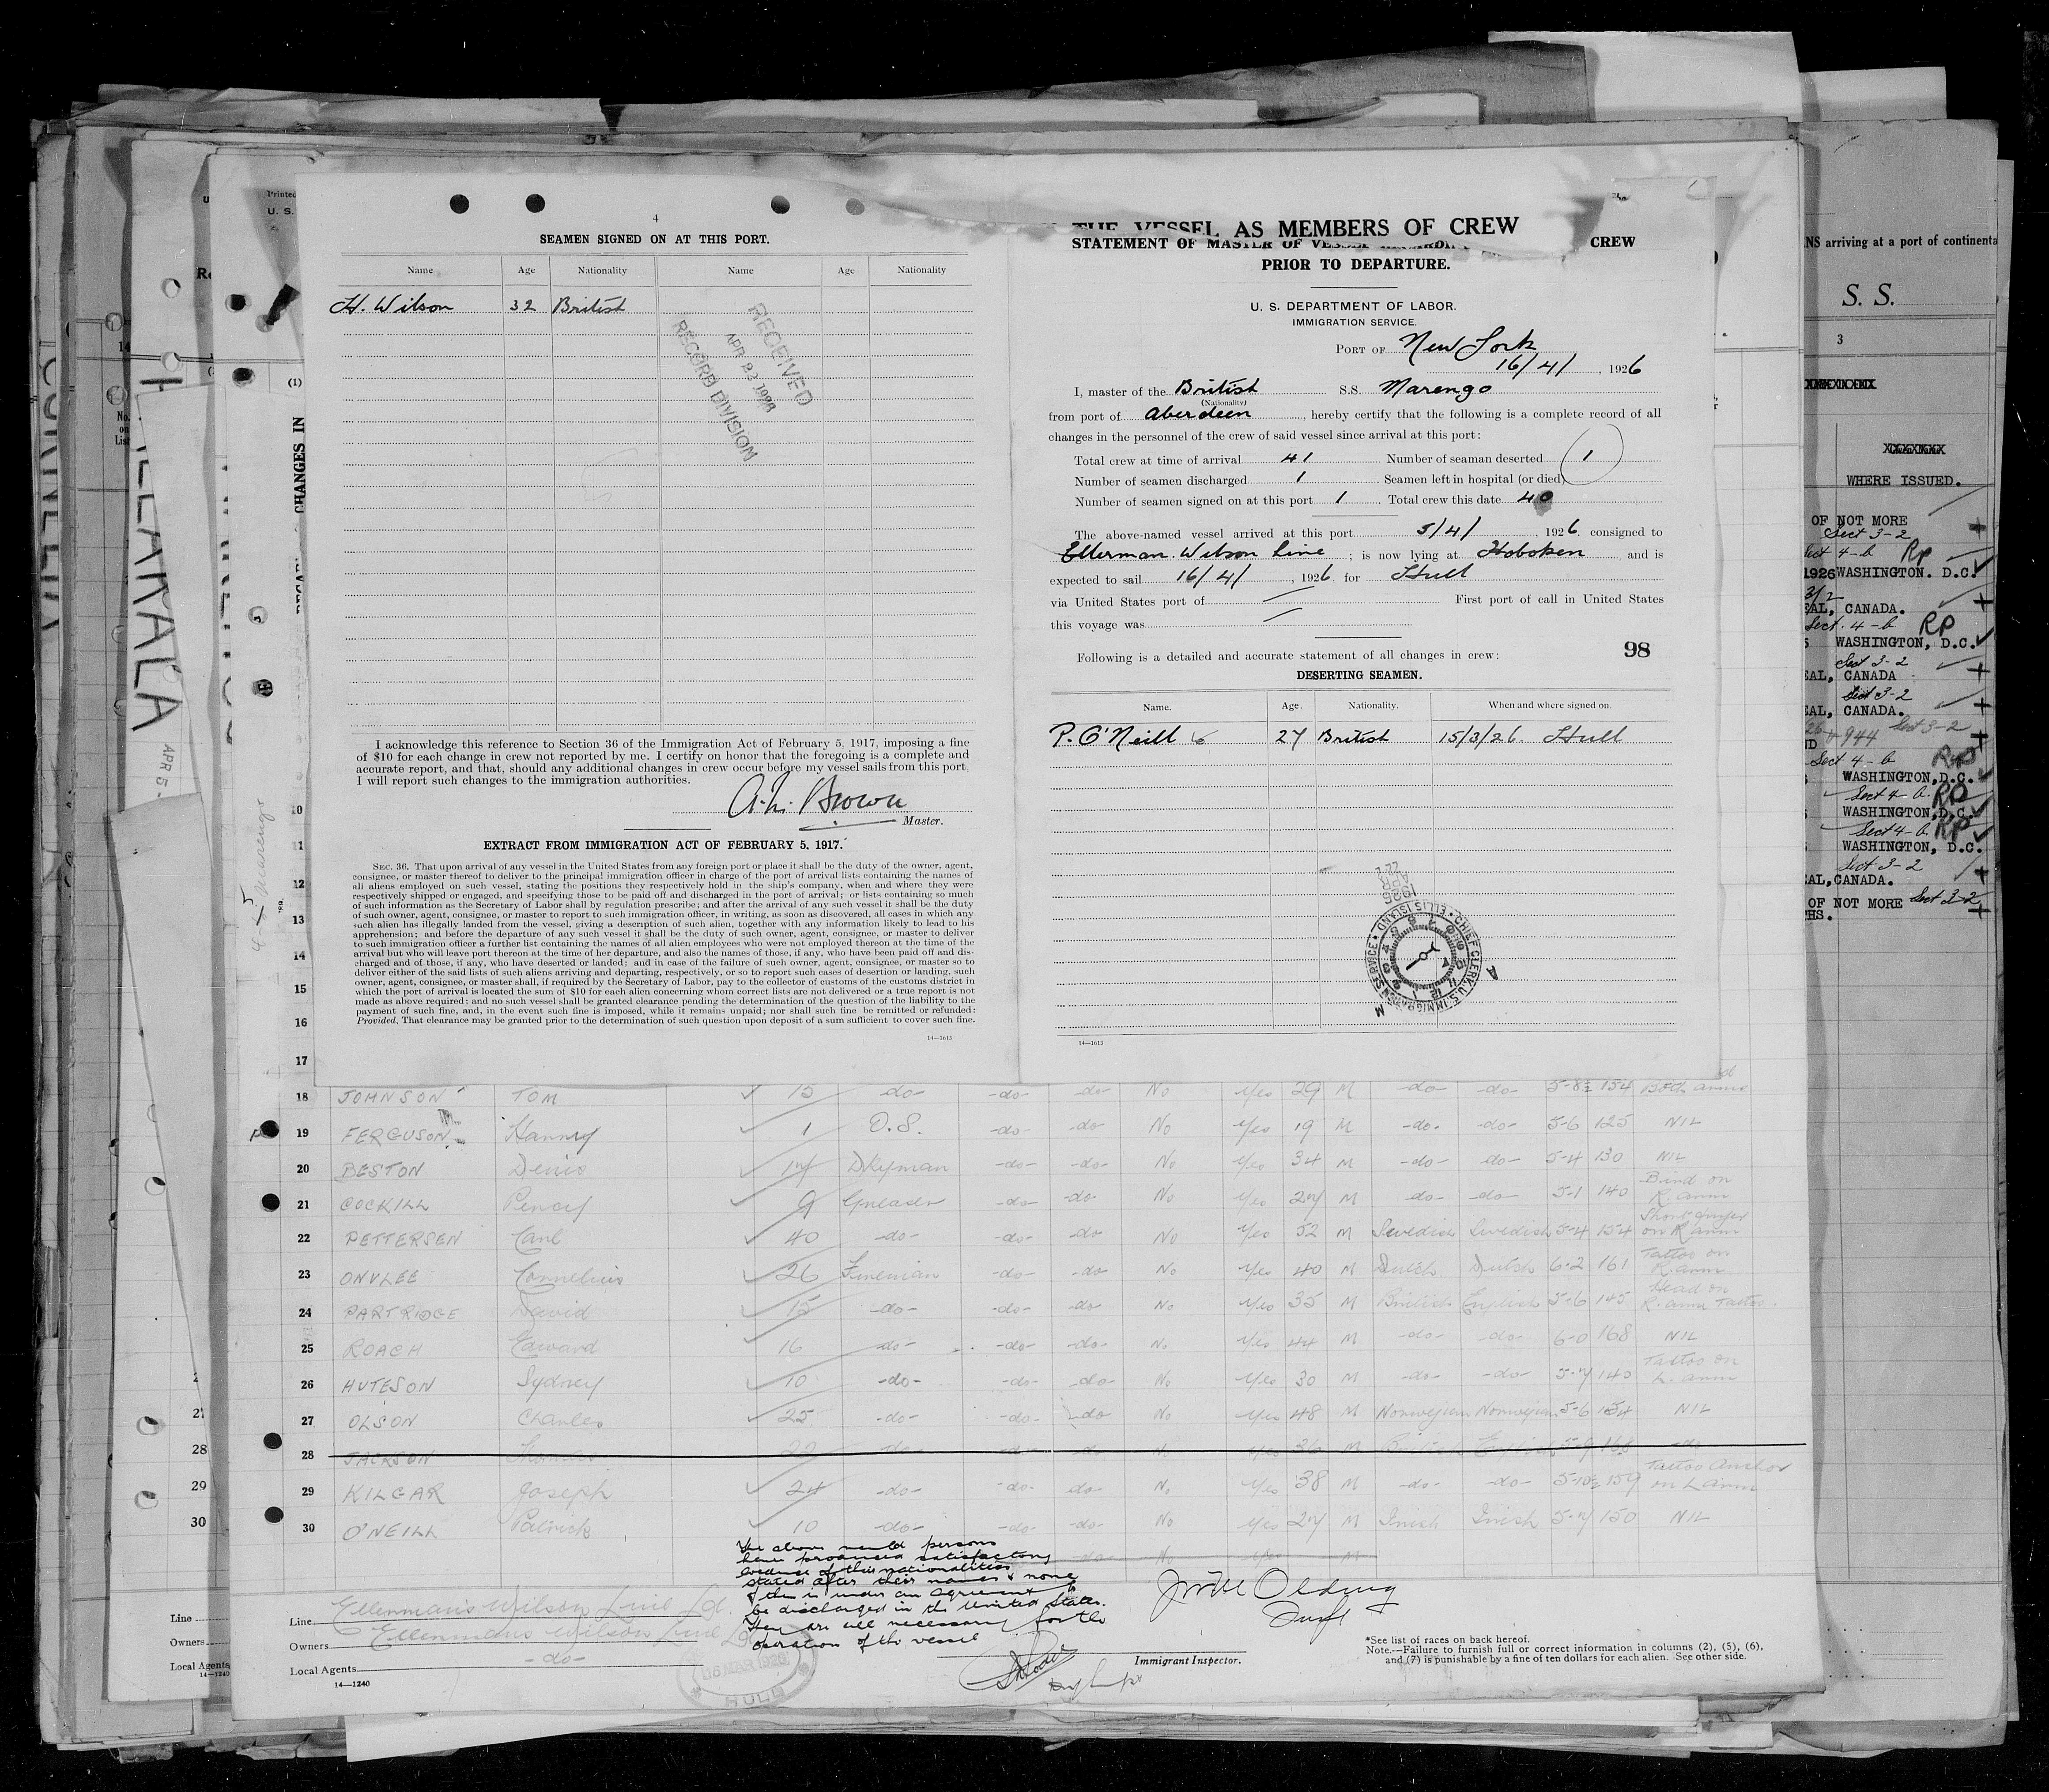 4
SEAMEN SIGNED ON AT THIS PORT.
Name Age Nationality Name Age Nationality
H. Wilson 32 British
RECEIVED
APR 23 1926
RECORD DIVISION
I acknowledge this reference to Section 36 of the Immigration Act of February 5, 1917, imposing a fine
of $10 for each change in crew not reported by me. I certify on honor that the foregoing is a complete and
accurate report, and that, should any additional changes in crew occur before my vessel sails from this port
I will report such changes to the immigration authorities.
Brown
Master.
EXTRACT FROM IMMIGRATION ACT OF FEBRUARY 5, 1917.
SEC. 36. That upon arrival of any vessel in the United States from any foreign port or place it shall be the duty of the owner, agent,
consignee, or master thereof to deliver to the principal immigration officer in charge of the port of arrival lists containing the names of
all aliens employed on such vessel, stating the positions they respectively hold in the ship's company, when and where they were
respectively shipped or engaged, and specifying those to be paid off and discharged in the port of arrival; or lists containing so much
of such information as the Secretary of Labor shall by regulation prescribe; and after the arrival of any such vessel it shall be the duty
of such owner, agent, consignee, or master to report to such immigration officer, in writing, as soon as discovered, all cases in which any
such alien has illegally landed from the vessel, giving a description of such alien, together with any information likely to lead to his
apprehension; and before the departure of any such vessel it shall be the duty of such owner, agent, consignee, or master to deliver
to such immigration officer a further list containing the names of all alien employees who were not employed thereon at the time of the
arrival but who will leave port thereon at the time of her departure, and also the names of those, if any, who have been paid off and dis-
charged and of those, if any, who have deserted or landed; and in case of the failure of such owner, agent, consignee, or master so to
deliver either of the said lists of such aliens arriving and departing, respectively, or so to report such cases of desertion or landing, such
owner, agent, consignee, or master, shall, if required by the Secretary of Labor, pay to the collector of customs of the customs district in
which the port of arrival is located the sum of $10 for each alien concerning whom correct lists are not delivered or a true report is not
made as above required; and no such vessel shall be granted clearance pending the determination of the question of the liability to the
payment of such fine, and, in the event such fine is imposed, while it remains unpaid; nor shall such fine be remitted or refunded:
Provided, That clearance may be granted prior to the determination of such question upon deposit of a sum sufficient to cover such fine.
14—1613
THE VESSEL AS MEMBERS OF CREW
STATEMENT OF MASTER OF VESSEL CREW
PRIOR TO DEPARTURE.
U. S. DEPARTMENT OF LABOR.
IMMIGRATION SERVICE.
PORT OF New York
16/4/, 1926
I, master of the British S.S. Marengo
(Nationality)
from port of Aberdeen, hereby certify that the following is a complete record of all
changes in the personnel of the crew of said vessel since arrival at this port:
Total crew at time of arrival 41 Number of seaman deserted 1
Number of seamen discharged 1 Seamen left in hospital (or died)
Number of seamen signed on at this port 1 Total crew this date 40
The above-named vessel arrived at this port 5/4/, 1926 consigned to
Ellerman Wilson Line; is now lying at Hoboken and is
expected to sail 16/4/, 1926 for Hull
via United States port of First port of call in United States
this voyage was
Following is a detailed and accurate statement of all changes in crew: 98
DESERTING SEAMEN.
Name. Age. Nationality. When and where signed on.
P. O'Neill 27 British 15/3/26. Hull
CHIEF CLERK, U.S. IMMIGRATION SERVICE ELLIS ISLAND
14—1613
17
18 JOHNSON TOM 15 -do- -do- -do- No Yes 29 M -do- -do- 5-8½ 154 Both arms
19 FERGUSON Harry 1 O.S. -do- -do- No Yes 19 M -do- -do- 5-6 125 NIL
20 BESTON Denis 14 Dkyman -do- -do- No Yes 34 M -do- -do- 5-4 130 NIL
21 COCKILL Percy 9 Greaser -do- -do- No Yes 27 M -do- -do- 5-1 140 Bird on R. arm
22 PETTERSEN Carl 40 -do- -do- -do No Yes 52 M Swedish Swedish 5-4 154 on R arm
23 ONVLEE Cornelius 26 Fireman -do- -do- No Yes 40 M Dutch Dutch 6-2 161 Tattoo on R. arm
24 PARTRIDGE David 15 -do- -do- -do No Yes 35 M British English 5-6 145 Head on R. arm Tattoo
25 ROACH Edward 16 -do- -do- -do- No Yes 44 M -do- -do- 6-0 168 NIL
26 HUTESON Sydney 10 -do- -do- -do- No Yes 30 M -do- -do- 5-7 140 Tattoo on L. arm
27 OLSON Charles 25 -do- -do- -do No Yes 48 M Norwegian Norwegian 5-6 154 NIL
28 JACKSON Thomas 22 -do- No Yes 36 M 168 -do-
29 KILGAR Joseph 24 -do- -do- -do- No Yes 38 M -do- -do- 5-10½ 159 Tattoo Anchor on L arm
30 O'NEILL Patrick 10 -do- -do- -do- No Yes 27 M Irish Irish 5-7 150 NIL
The above named persons
have produced satisfactory
evidence of their nationalities
stated after their names & none
of them is under an agreement to
be discharged in the United States.
They are all necessary for the
operation of the vessel
Line Ellerman's Wilson Line Ld.
Owners Ellerman's Wilson Line Ld
Local Agents -do-
14—1240
HULL
Immigrant Inspector.
*See list of races on back hereof.
Note.—Failure to furnish full or correct information in columns (2), (5), (6),
and (7) is punishable by a fine of ten dollars for each alien. See other side.
NS arriving at a port of continenta
S. S.
3
WHERE ISSUED.
OF NOT MORE
Sect 3-2
Sect 4-b RP
1926 WASHINGTON. D.C.
3/2
EAL, CANADA.
Sect. 4-b RP
WASHINGTON, D.C.
Sect 3-2
EAL, CANADA
Sect 3-2
EAL, CANADA.
Sect 3-2
Sect 4-b RP
WASHINGTON, D.C.
Sect 4-b RP
WASHINGTON, D.C.
Sect 4-b RP
WASHINGTON, D.C.
Sect 3-2
EAL, CANADA.
OF NOT MORE Sect 3-2
HS.